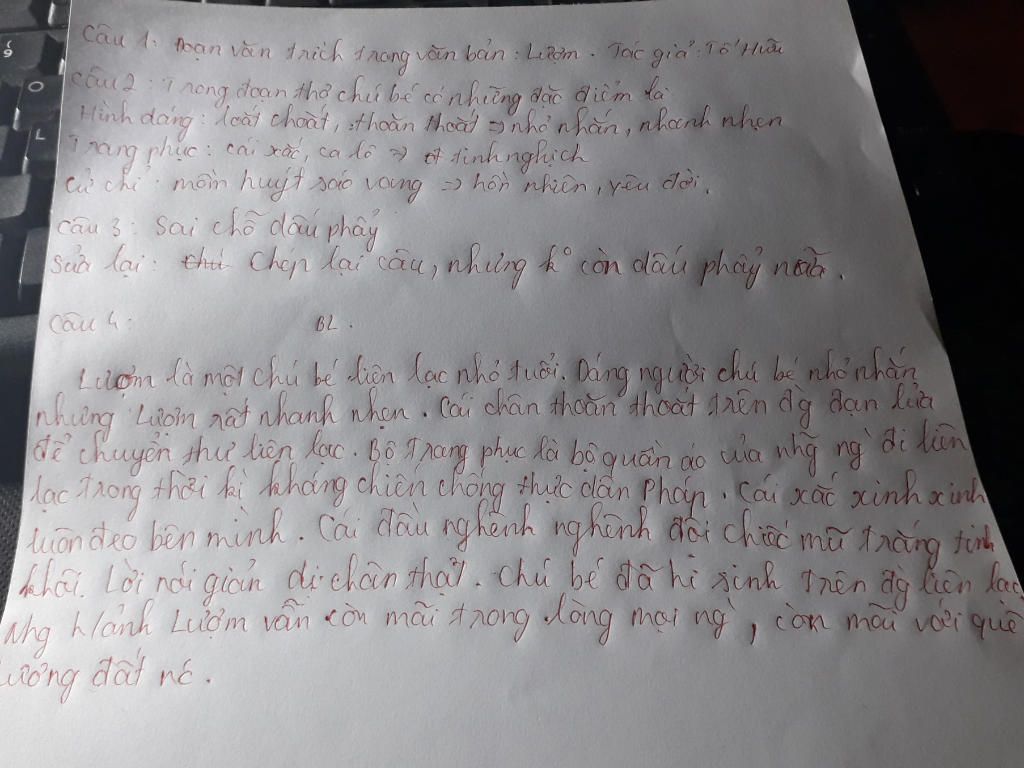 Câu 1: Đoạn văn trích trong văn bản: Lượm. Tác giả: Tố Hữu
Câu 2: Trong đoạn thơ chú bé có những đặc điểm là:
Hình dáng: loắt choắt, thoăn thoắt => nhỏ nhắn, nhanh nhẹn
Trang phục: cái xắc, ca lô => tinh nghịch
Cử chỉ: mồm huýt sáo vang => hồn nhiên, yêu đời.
Câu 3: Sai chỗ dấu phẩy
Sửa lại: Chép lại câu, nhưng ko còn dấu phẩy nữa.
Câu 4: BL.
Lượm là một chú bé liên lạc nhỏ tuổi. Dáng người chú bé nhỏ nhắn
nhưng Lượm rất nhanh nhẹn. Cái chân thoăn thoắt trên đg đạn lửa
để chuyển thư liên lạc. Bộ trang phục là bộ quần áo của nhg ng đi liên
lạc trong thời kì kháng chiến chống thực dân Pháp. Cái xắc xinh xinh
luôn đeo bên mình. Cái đầu nghênh nghênh đội chiếc mũ trắng tinh
khôi. Lời nói giản dị chân thật. Chú bé đã hi sinh trên đg liên lạc
Nhg h/ảnh Lượm vẫn còn mãi trong lòng mọi ng, còn mãi với quê
ương đất nc.